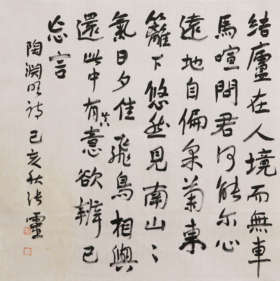 结廬在人境而無車
馬喧問君何能尔心
遠地自偏采菊東
籬下悠然見南山〻
氣日夕佳飛鳥相與
還此中有真意欲辨已
忘言
陶渊明诗己亥秋张靈